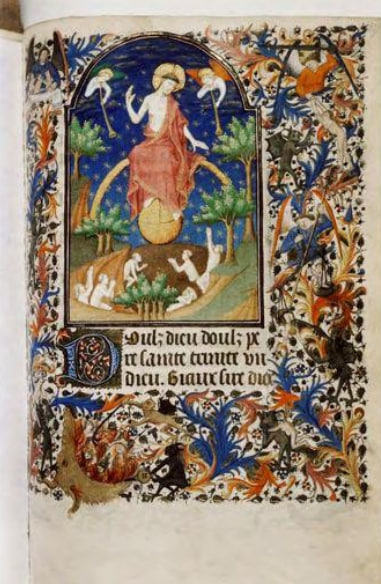 Doulz dieu doulz pe
re sainte trinite un
dieu. Biaux sire die